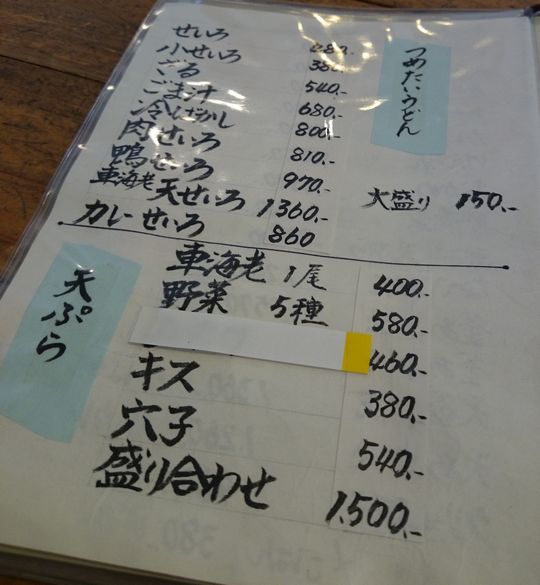 つめたいうどん
せいろ 480.-
小せいろ 380.-
ざる 540.-
ごま汁 680.-
冷ばかし 800.-
肉せいろ 810.-
鴨せいろ 970.-
車海老天せいろ 1360.-
大盛り 150.-
カレーせいろ 860
天ぷら
車海老 1尾 400.-
野菜 5種 580.-
460.-
キス 380.-
穴子 540.-
盛り合わせ 1.500.-